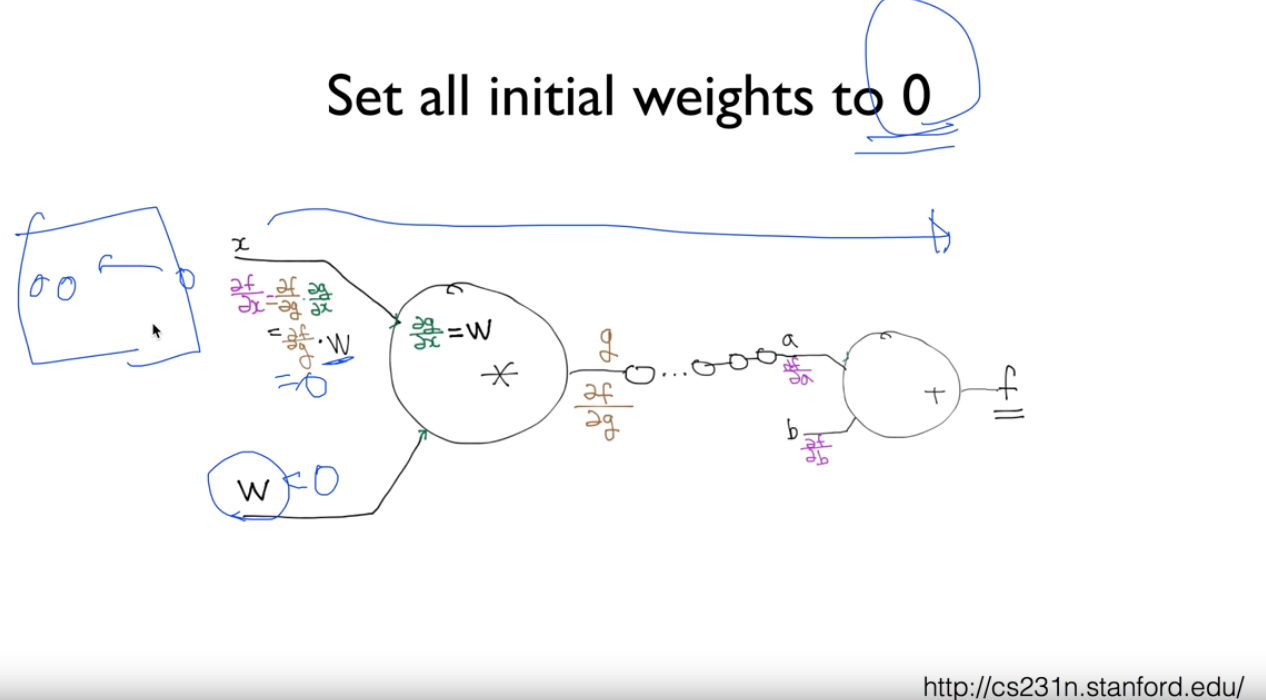 Set all initial weights to 0
x
∂f/∂x = ∂f/∂g · ∂g/∂x
= ∂f/g · w
= 0
∂g/∂x = w
*
g
∂f/∂g
...
a
∂f/∂a
b
∂f/∂b
+
f
w = 0
0 0
0
http://cs231n.stanford.edu/